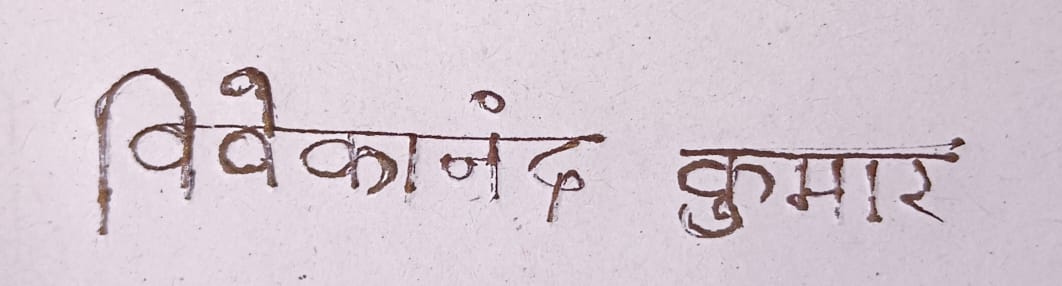 विवेकानंद कुमार